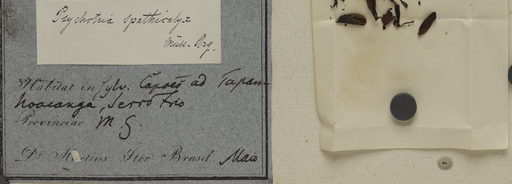 Psychotria spathicalyx
Müll. Arg.
Habitat in sylv. Capoës ad Tapan-
hoacanga, Serro Frio
Provinciae M. G.
Dr. Martius Iter Brasil. Maio